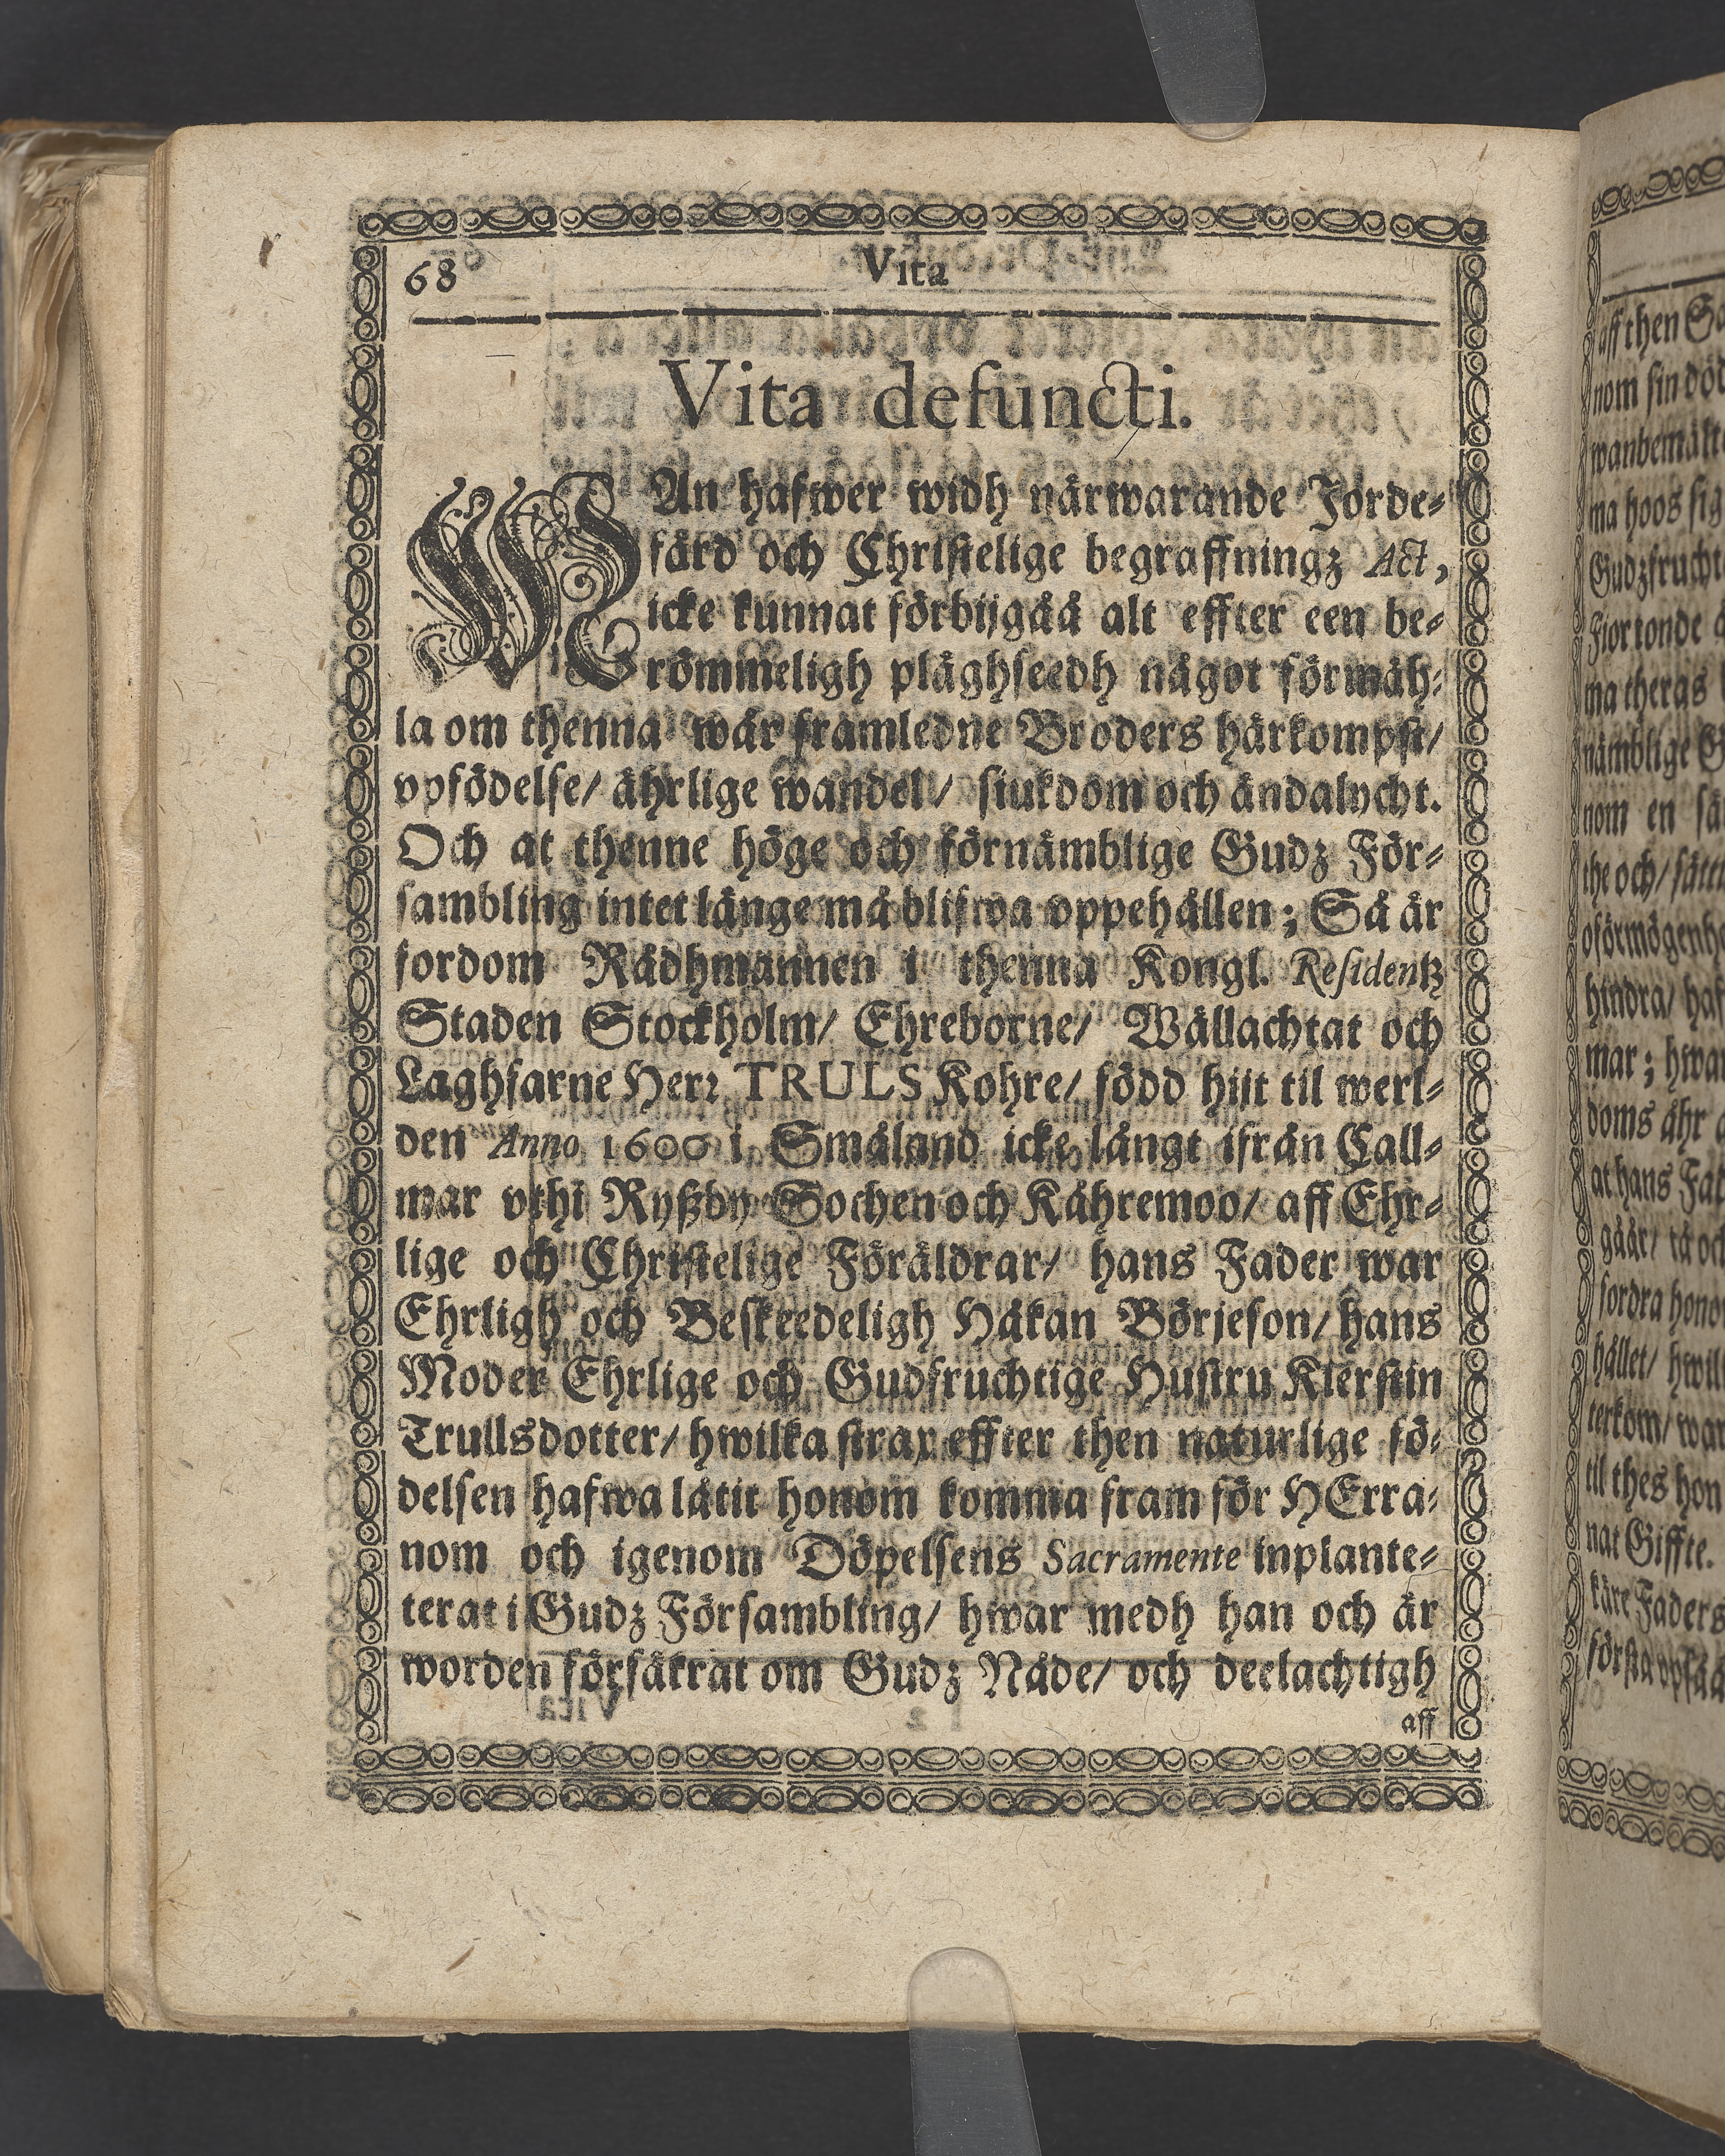 68
Vita
Vita defuncti.
WAn hafwer widh närwarande Jorde-
färd och Christelige begraffningz Act,
icke kunnat förbijgåå alt effter een be-
römmeligh plåghseedh något förmäh-
la om thenna wår framledne Broders härkompst/
vpfödelse/ ährlige wandel/ siukdom och ändalycht.
Och at thenne höge och förnämblige Gudz För-
sambling intet länge må blifwa vppehållen; Så är
fordom Rådhmannen i thenna Kongl. Residentz
Staden Stockholm/ Ehreborne/ Wällachtat och
Laghfarne Herr TRULS Kohre/ född hijt til werl-
den Anno 1600 i Småland icke långt ifrån Call-
mar vthi Ryßby Sochen och Kåhremoo/ aff Ehr-
lige och Christelige Föräldrar/ hans Fader war
Ehrligh och Beskeedeligh Håkan Börjeson/ hans
Moder Ehrlige och Gudfruchtige Hustru Kierstin
Trullsdotter/ hwilka strax effter then naturlige fö-
delsen hafwa låtit honom komma fram för HErra-
nom och igenom Döpelsens Sacramente inplante-
terat i Gudz Försambling/ hwar medh han och är
worden försäkrat om Gudz Nåde/ och deelachtigh
aff
aff then
nom sin
ma hoos sig
Fiortonde
ma theras
nämblige
nom en
the och/
hindra/
mar;
doms åhr
at hans
gåår/ tå
fordra
hållet/
terkom/
til thes
nat Giffte.
käre Faders